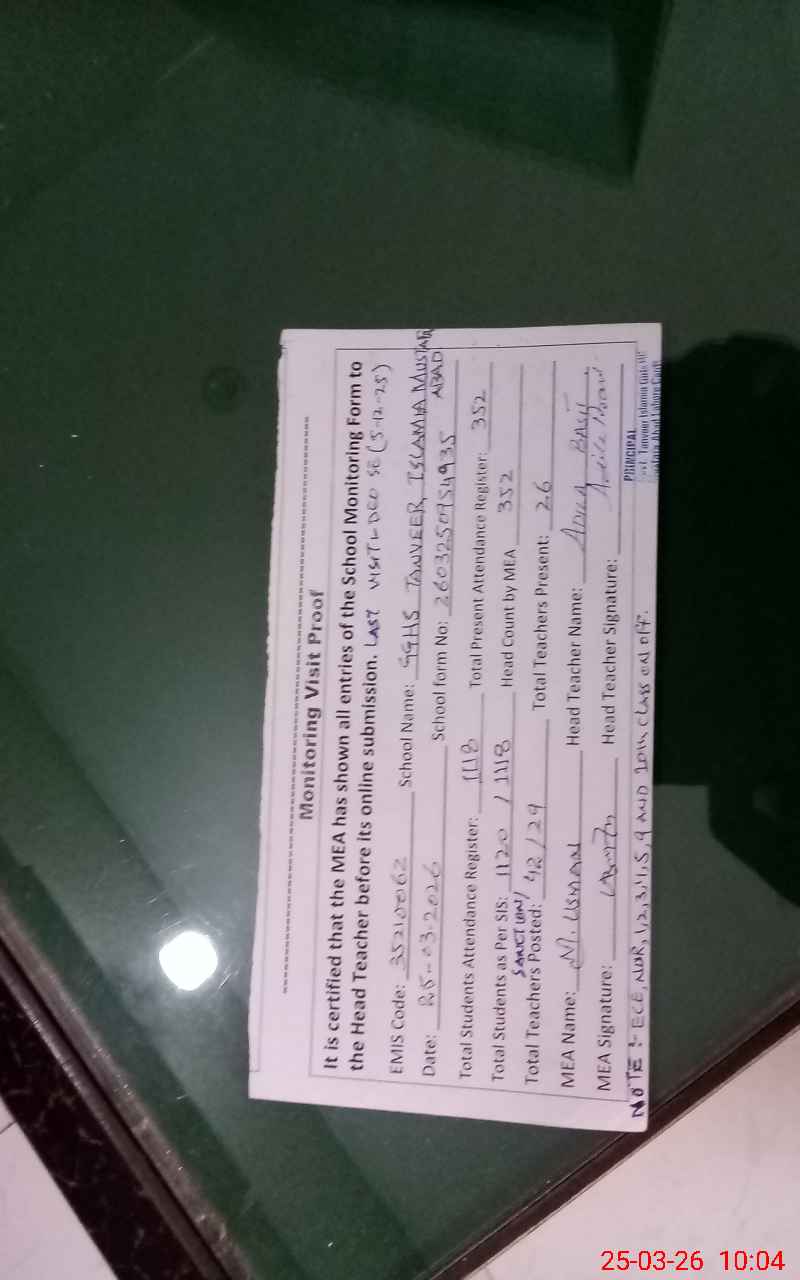 Monitoring Visit Proof
It is certified that the MEA has shown all entries of the School Monitoring Form to
the Head Teacher before its online submission. LAST VISIT DEO SE (5-12-25)
EMIS Code: 35210062 School Name: GGHS TANVEER ISLAMIA MUSTAFA ABAD
Date: 25-03-2026 School form No: 2603250954935
Total Students Attendance Register: 1118 Total Present Attendance Register: 352
Total Students as Per SIS: 1120 / 1118 Head Count by MEA 352
SANCTION/
Total Teachers Posted: 42/29 Total Teachers Present: 26
MEA Name: M. USMAN Head Teacher Name:
MEA Signature: Head Teacher Signature:
PRINCIPAL
NOTE :- ECE, NUR, 1,2,3,4,5,9 AND 10th class on off.
25-03-26 10:04